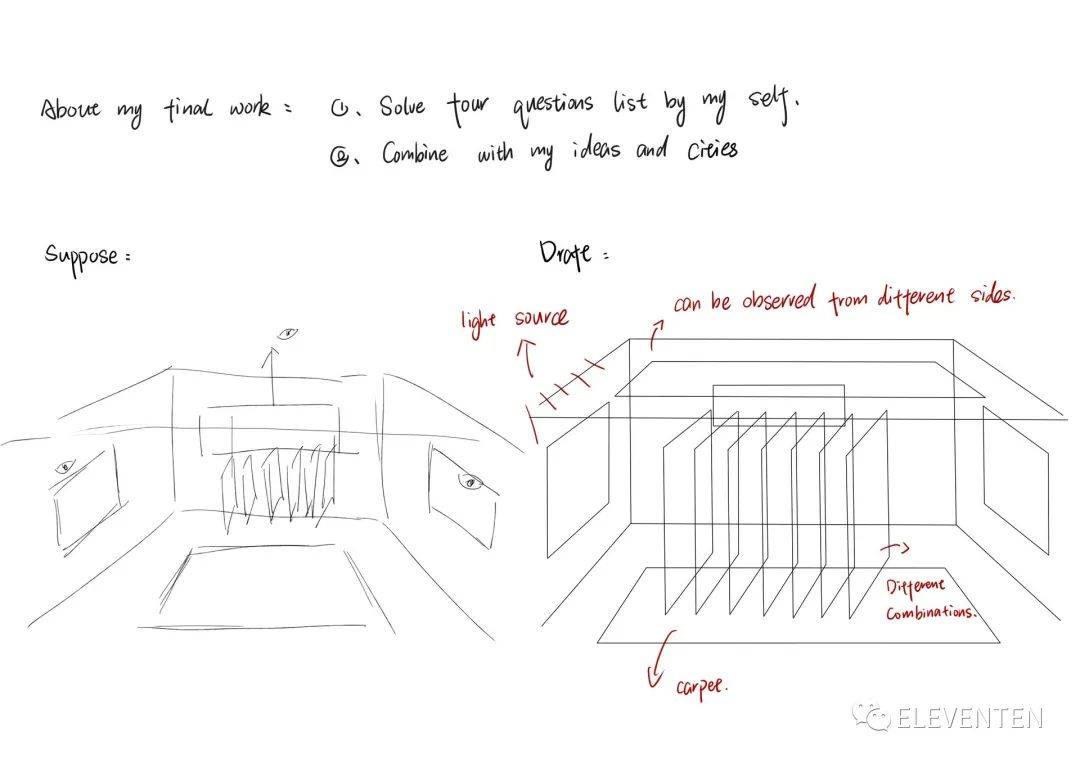 About my final work : ①、Solve four questions list by my self.
②、Combine with my ideas and cities
Suppose :
Drafe :
light source
can be observed from different sides.
Different
Combinations.
carpee.
ELEVENTEN